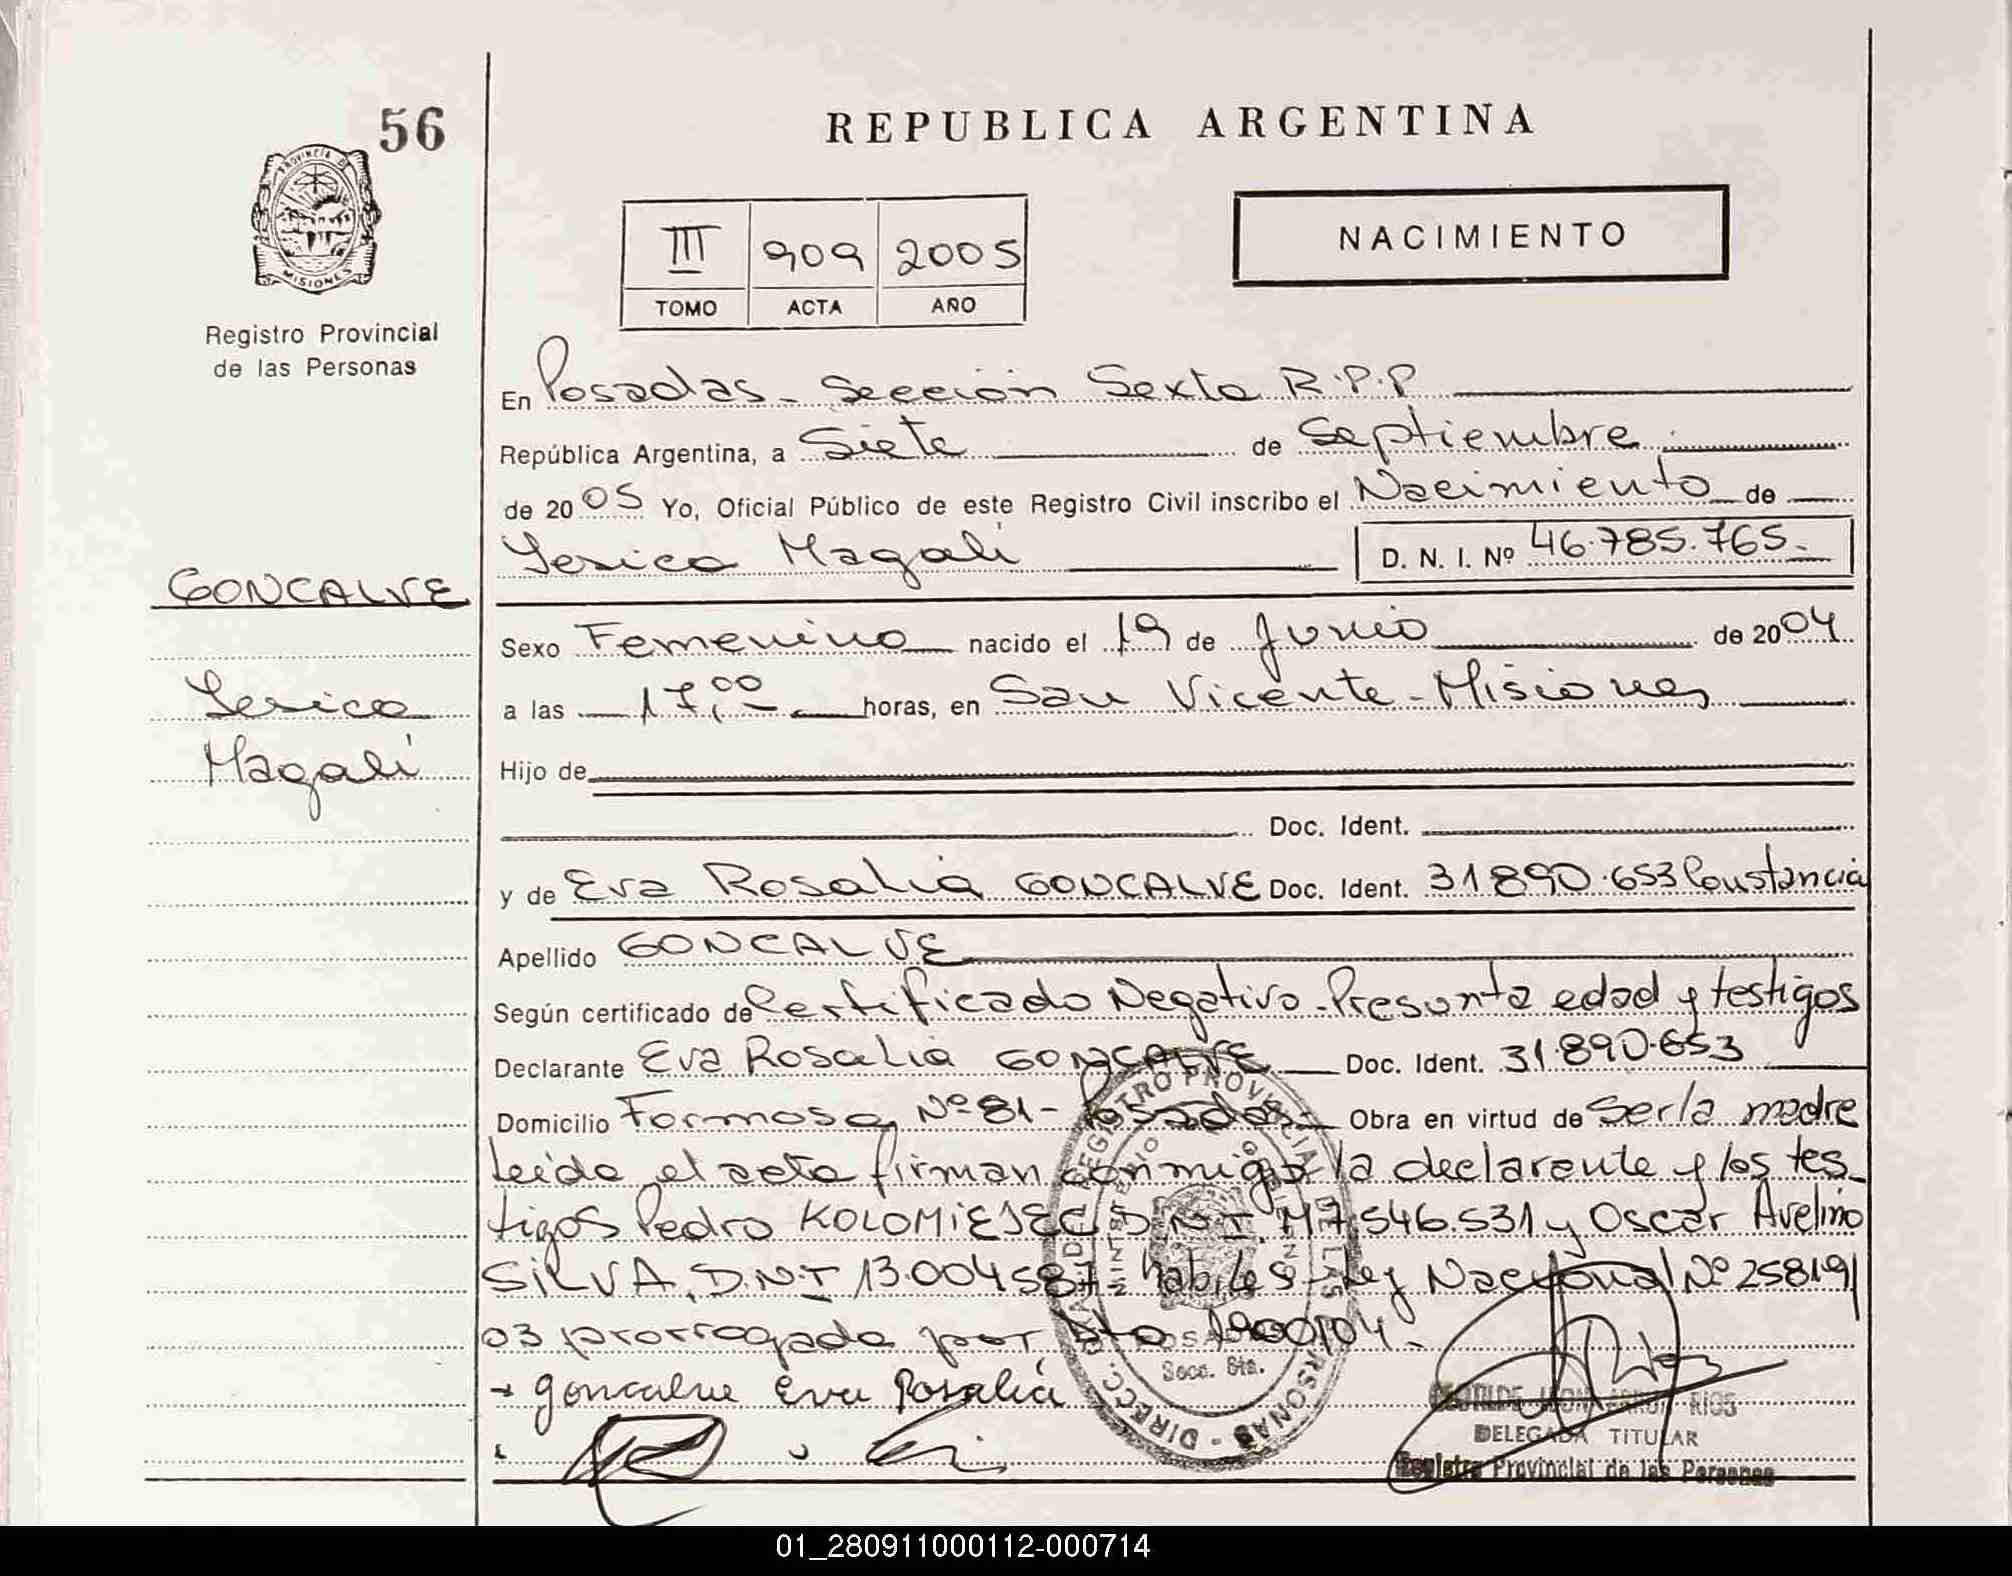 56
REPUBLICA ARGENTINA
PROVINCIA DE
MISIONES
III 909 2005
TOMO ACTA AÑO
NACIMIENTO
Registro Provincial
de las Personas
En Posadas - Sección Sexta R.P.P
República Argentina, a Siete de Septiembre
de 2005 Yo, Oficial Público de este Registro Civil inscribo el Nacimiento de
Yesica Magalí D. N. I. Nº 46.785.765.-
GONCALVE
Sexo Femenino nacido el 19 de Junio de 2004
Yesica
a las 17,00 horas, en San Vicente - Misiones
Magalí
Hijo de
Doc. Ident.
y de Eva Rosalia GONCALVE Doc. Ident. 31.890.653 Constancia
Apellido GONCALVE
Según certificado de Certificado Negativo - Presunta edad y testigos
Declarante Eva Rosalia GONCALVE Doc. Ident. 31.890.653
Domicilio Formosa Nº 81 - Posadas - Obra en virtud de Ser la madre
Leída el acta firman conmigo la declarante y los tes-
tigos Pedro KOLOMIEJEC D.N.I. M7.546.531 y Oscar Avelino
SILVA, D.N.I 13.004.587 habiles - Ley Nacional Nº 25819/
03 prorrogada por Dto 1900/04.-
Goncalve Eva Rosalia
DIRECC. GRAL. DEL REGISTRO PROVINCIAL DE LAS PERSONAS
MINISTERIO DE GOBIERNO
POSADAS
Secc. 6ta.
RIOS
DELEGADA TITULAR
Registro Provincial de las Personas
01_280911000112-000714